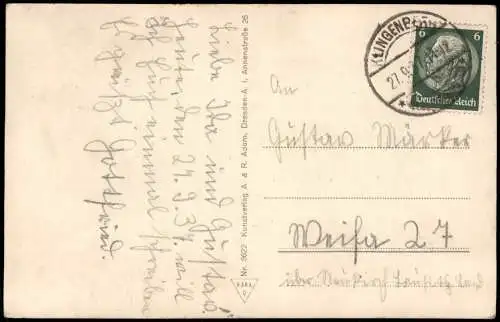 Liebe Ida und Gustav
Heute, den 27.9.37. will
ich Euch einmal schreiben
Es grüßt Gottfried.
Nr. 3622 Kunstverlag A. & R. Adam, Dresden-A. I, Annenstraße 26
KLINGENBERG
27.9.
6 6
Deutsches Reich
An
Gustav Märker
Weifa 27
über Neukirch Lausitz Land